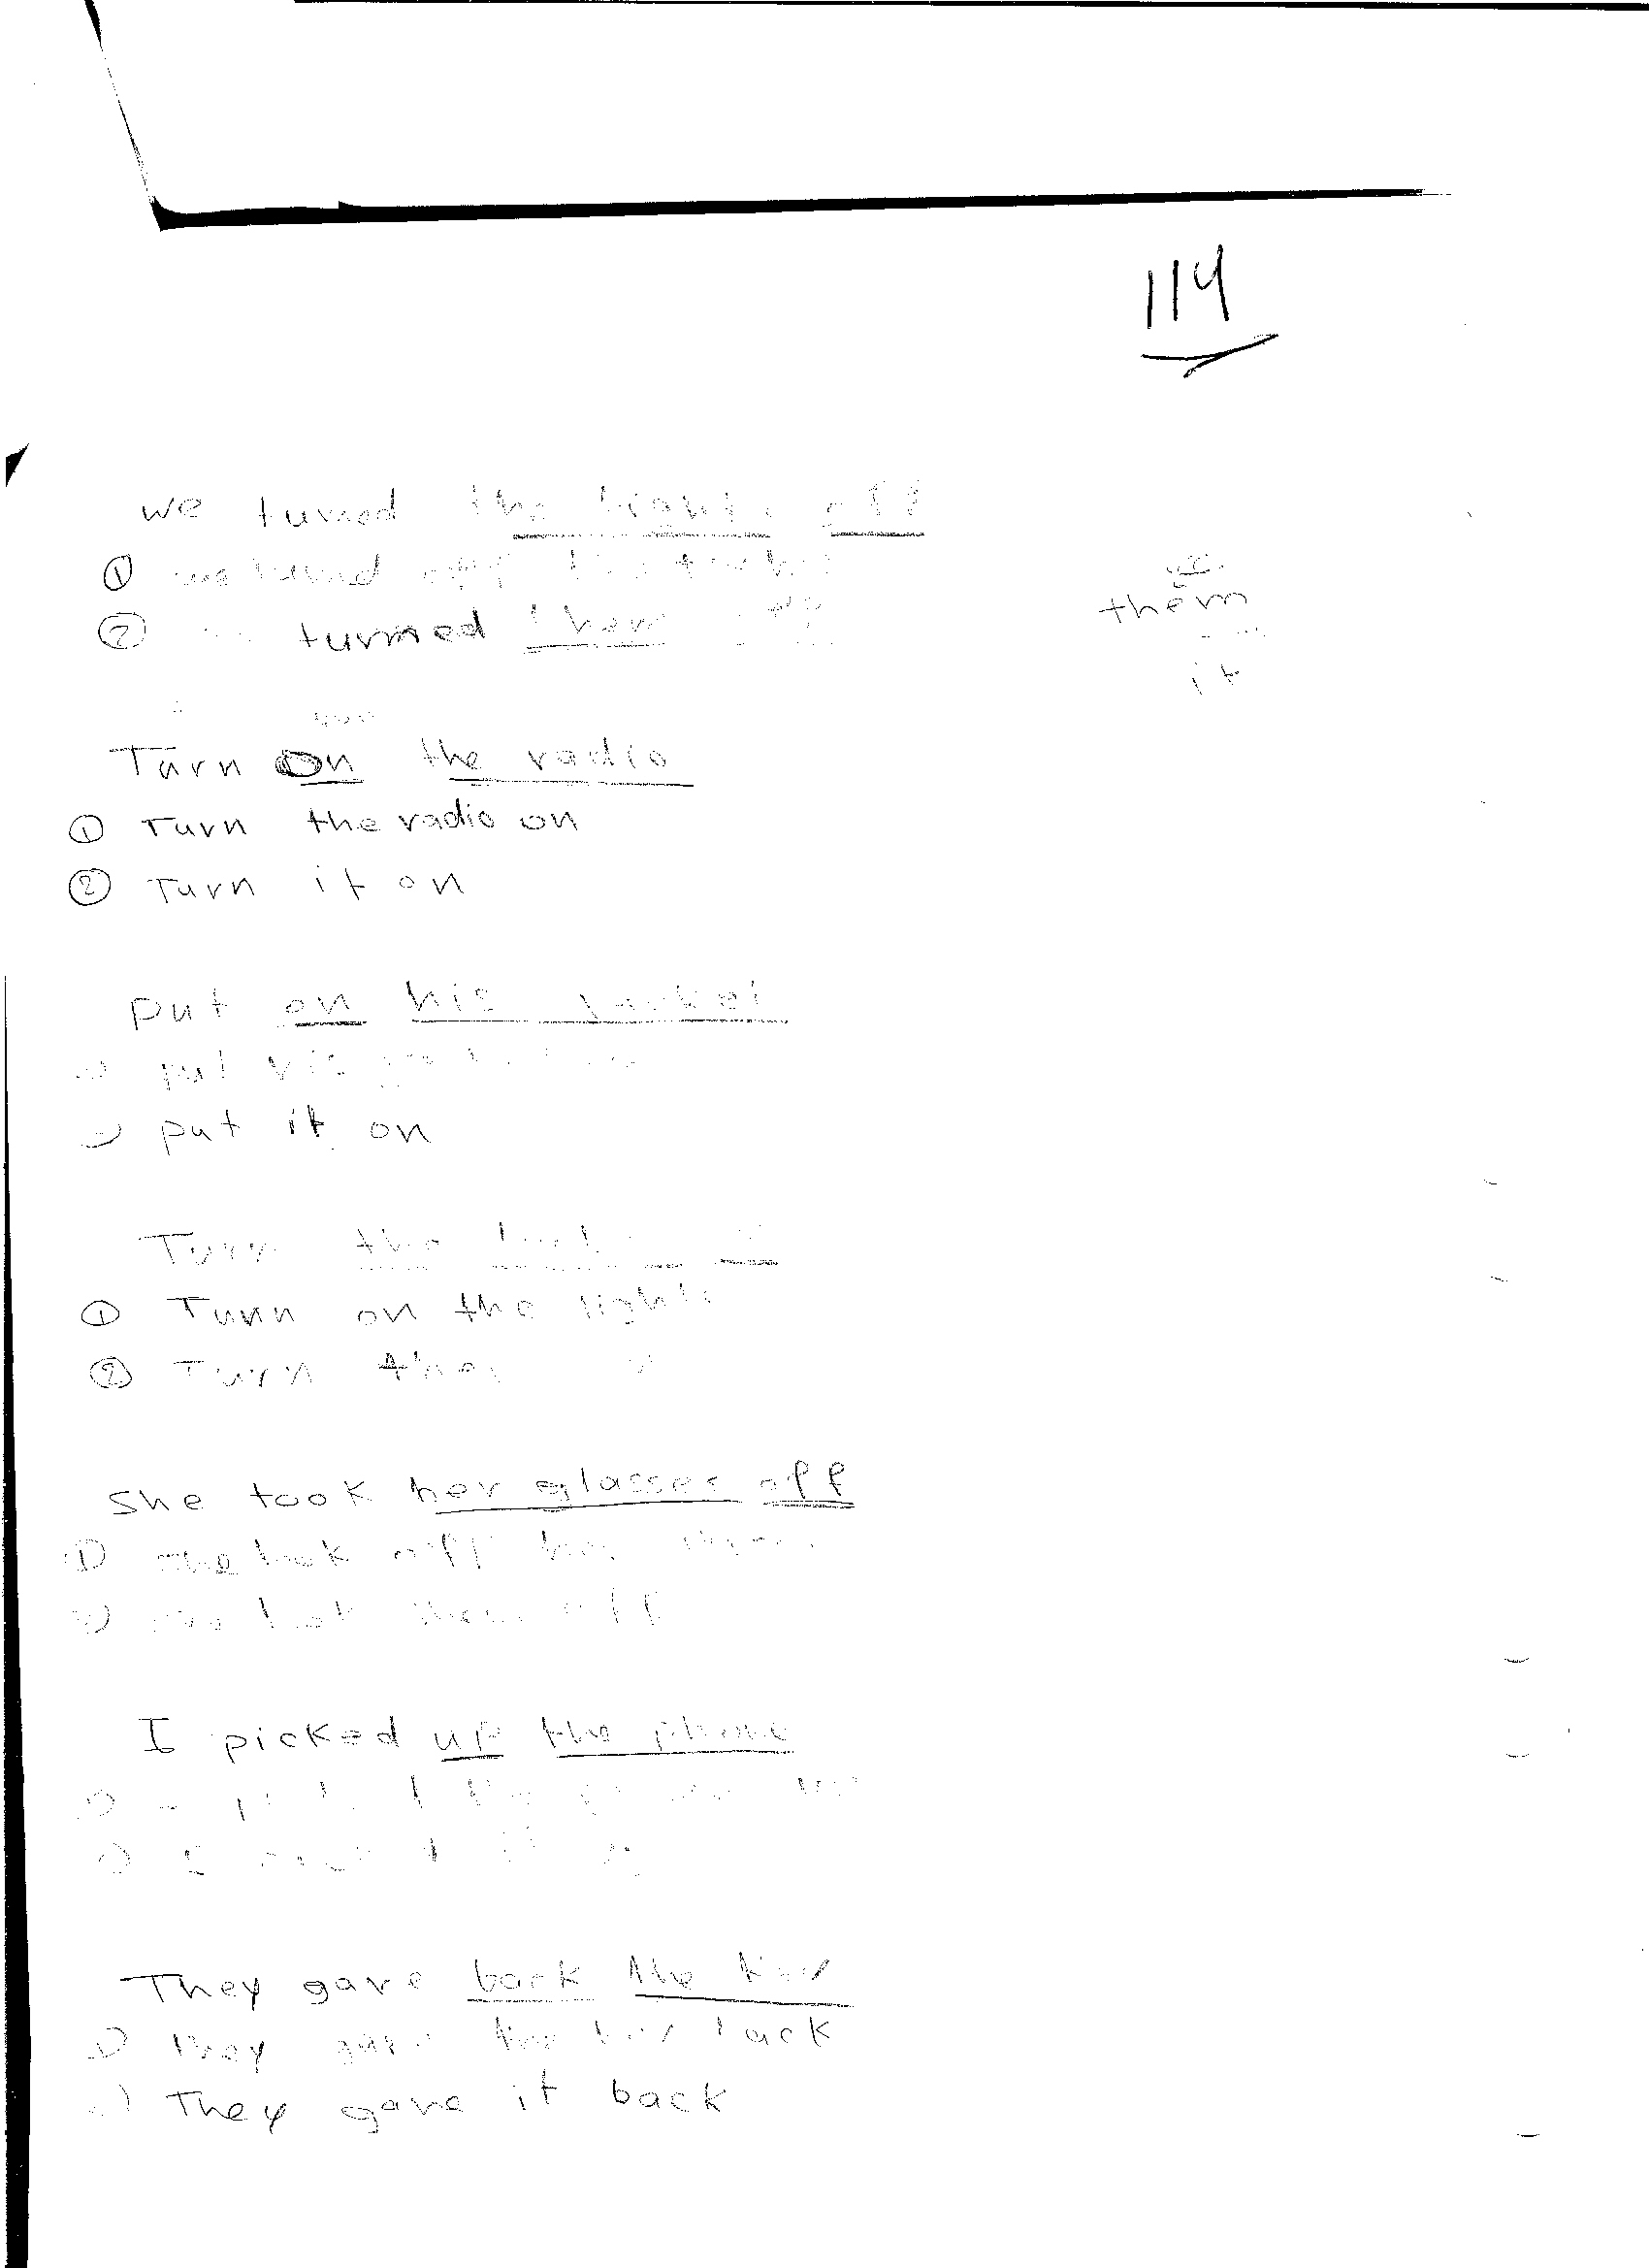 114
we turned the lights off
① we turned off the
② turned them off
them
it
Turn on the radio
① Turn the radio on
② Turn it on
put on his jacket
put his
put it on
Turn the
① Turn on the lights
② Turn
she took her glasses off
① she took off her
she took them off
I picked up the phone
I picked the
I it
They gave back the key
They gave the key back
They gave it back